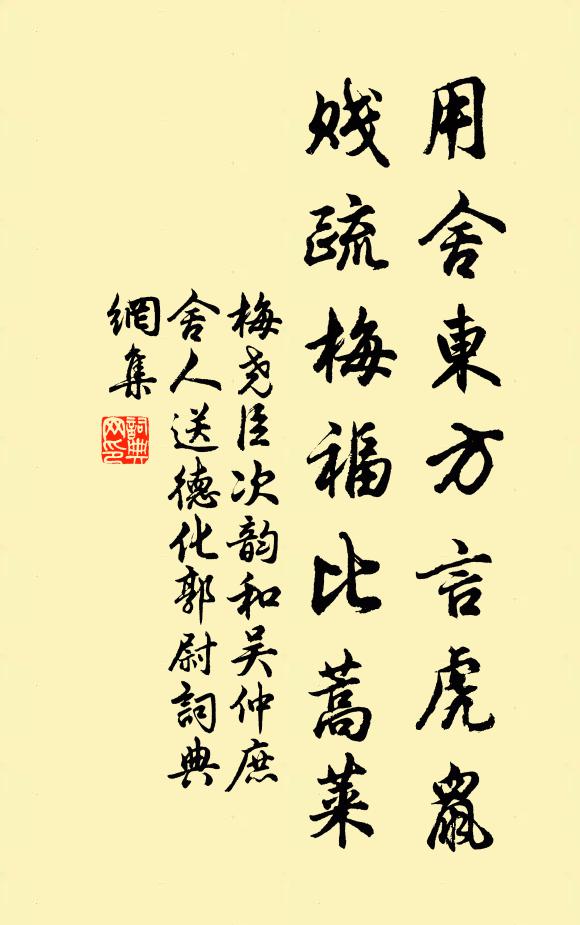 用舍東方言虎鼠
賤疏梅福比蒿萊
梅堯臣次韵和吴仲庶
舍人送德化郭尉詞典
網集
詞典
网印